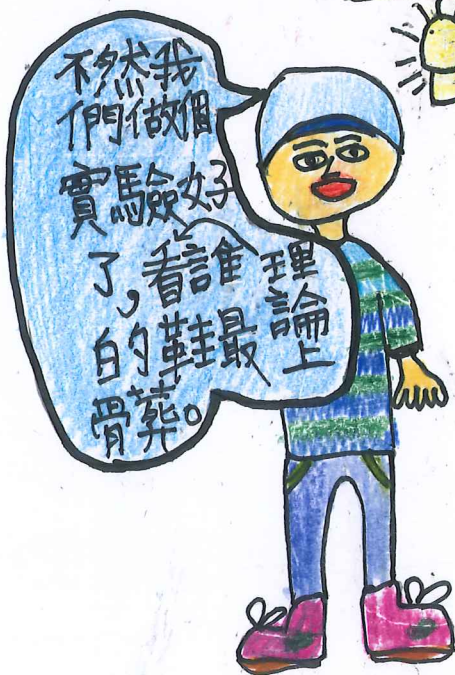 不然我
們做個
實驗好
了,看誰
的鞋最
髒。
理論上